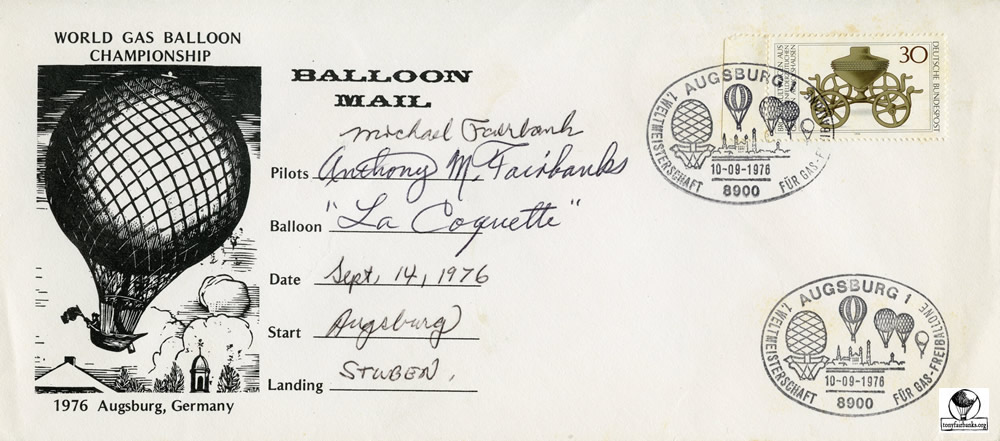 WORLD GAS BALLOON
CHAMPIONSHIP
1976 Augsburg, Germany
BALLOON
MAIL
Michael Fairbanks
Pilots Anthony M. Fairbanks
Balloon "La Coquette"
Date Sept, 14, 1976
Start Augsburg
Landing STUBEN.
30
DEUTSCHE BUNDESPOST
AUGSBURG 1
1. WELTMEISTERSCHAFT
FÜR GAS-
10-09-1976
8900
AUGSBURG 1
1. WELTMEISTERSCHAFT
FÜR GAS-FREIBALLONE
10-09-1976
8900
tonyfairbanks.org